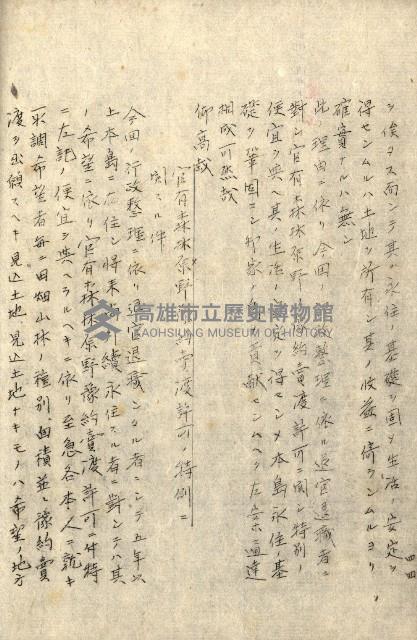 四四
ヲ俟タス而シテ其ノ永住ノ基礎ヲ固メ生活ノ安定ヲ
得センムルハ土地ヲ所有シ其ノ收益ニ倚ランムルヨリ
確實ナルハ無シ
此ノ理由ニ依リ今回ノ整理ニ依ル退官退職者ニ
對シ官有森林原野豫約賣渡許可ニ關シ特別ノ
便宜ヲ與ヘ其ノ生活ノ安定ヲ得セシメ本島永住ノ基
礎ヲ鞏固ニシ邦家ノ貢献センムヘク左案ニ通達
相成可然哉
仰高裁
官有森林原野豫約賣渡許可ノ特例ニ
關スル件
今回ノ行政整理ニ依リ退官退職シタル者ニシテ五年以
上本島ニ在住シ將來尚引續永住スル者ニ對シテハ其
ノ希望ニ依リ官有森林原野豫約賣渡許可ニ付特
ニ左記ノ便宜ヲ與ヘラルヘキニ依リ至急各本人ニ就キ
取調希望者每ニ田畑山林ノ種別、面積並ニ豫約賣
渡ヲ出願スヘキ見込土地見込土地ナキモノハ希望ノ地方
高雄市立歷史博物館
KAOHSIUNG MUSEUM OF HISTORY